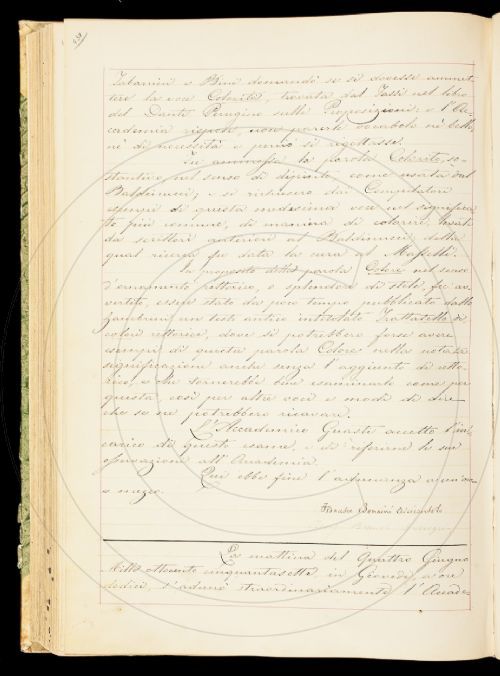 Tabarrini e Bini domandò se si dovesse ammet-
tere la voce Colorità, trovata dal Tassi nel libro
del Danti Perugino sulle Proposizioni; e l'Ac-
cademia rispose, non parerle vocabolo nè bello,
nè di necessità e perciò si rigettasse.
Fu ammessa la parola Colorito, so-
stantivo, nel senso di dipinto come usata dal
Baldinucci; e si richiesero dai Compilatori
esempi di questa medesima voce nel significa-
to più comune, di maniera di colorire, usata
da scrittori anteriori al Baldinucci; della
qual ricerca fu data la cura al Masselli.
In proposito della parola Colore nel senso
d'ornamento rettorico, o splendore di stile, fu av-
vertito, esser stato da poco tempo pubblicato dallo
Zambrini un testo antico intitolato Trattatello di
colori rettorici, dove si potrebbero forse avere
esempi di questa parola Colore nella notata
significazione anche senza l'aggiunto di retto-
rico, e che tornerebbe bene esaminarlo come per
questa, così per altre voci e modi di dire
che se ne potrebbero ricavare.
L'Accademico Guasti accettò l'in-
carico di questo esame, e di riferirne le sue
osservazioni all'Accademia.
Qui ebbe fine l'adunanza a un'ora
e mezzo.
Francesco Bonaini Arciconsolo
La mattina del Quattro Giugno
Mille ottocento cinquantasette, in Giovedì, a ore
dodici, s'adunò straordinariamente l'Accade-